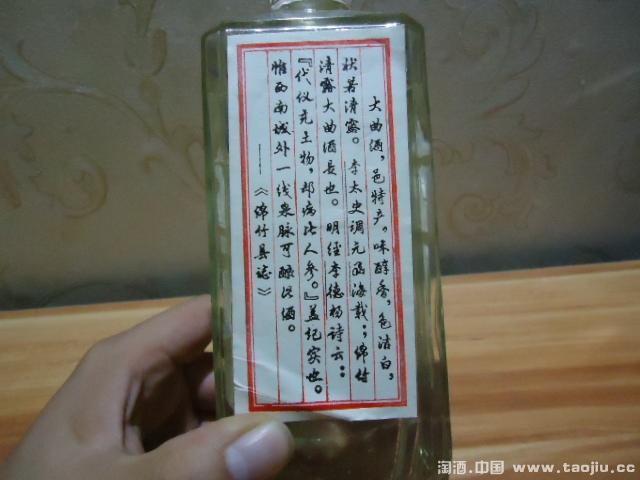 大曲酒，邑特产。味醇香，色洁白，
状若清露。李太史调元函海载：绵竹
清露大曲酒是也。明经李德扬诗云：
『代仪充土物，却病比人参。』盖纪实也。
惟西南城外一线泉脉可酿此酒。
——《绵竹县志》
淘酒.中国 www.taojiu.cc